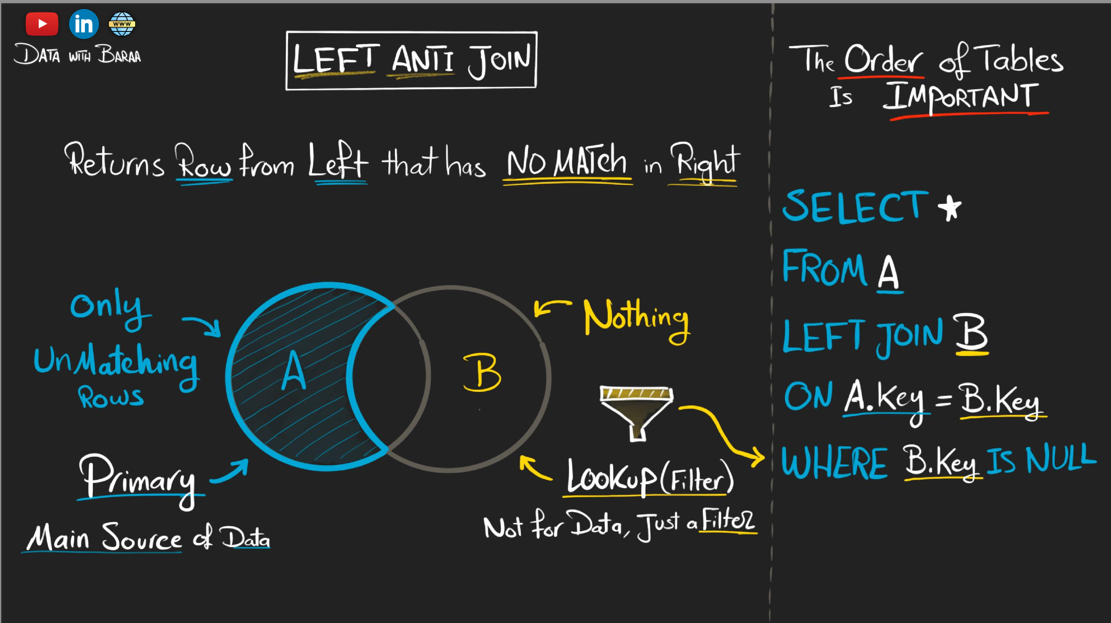 WWW
DATA WITH BARAA
LEFT ANTI JOIN
Returns Row from Left that has NO MATCH in Right
Only
UnMatching
Rows
A
B
Nothing
Primary
Main Source of Data
Lookup (Filter)
Not for Data, Just a Filter
The Order of Tables
Is IMPORTANT
SELECT *
FROM A
LEFT JOIN B
ON A.Key = B.Key
WHERE B.Key IS NULL